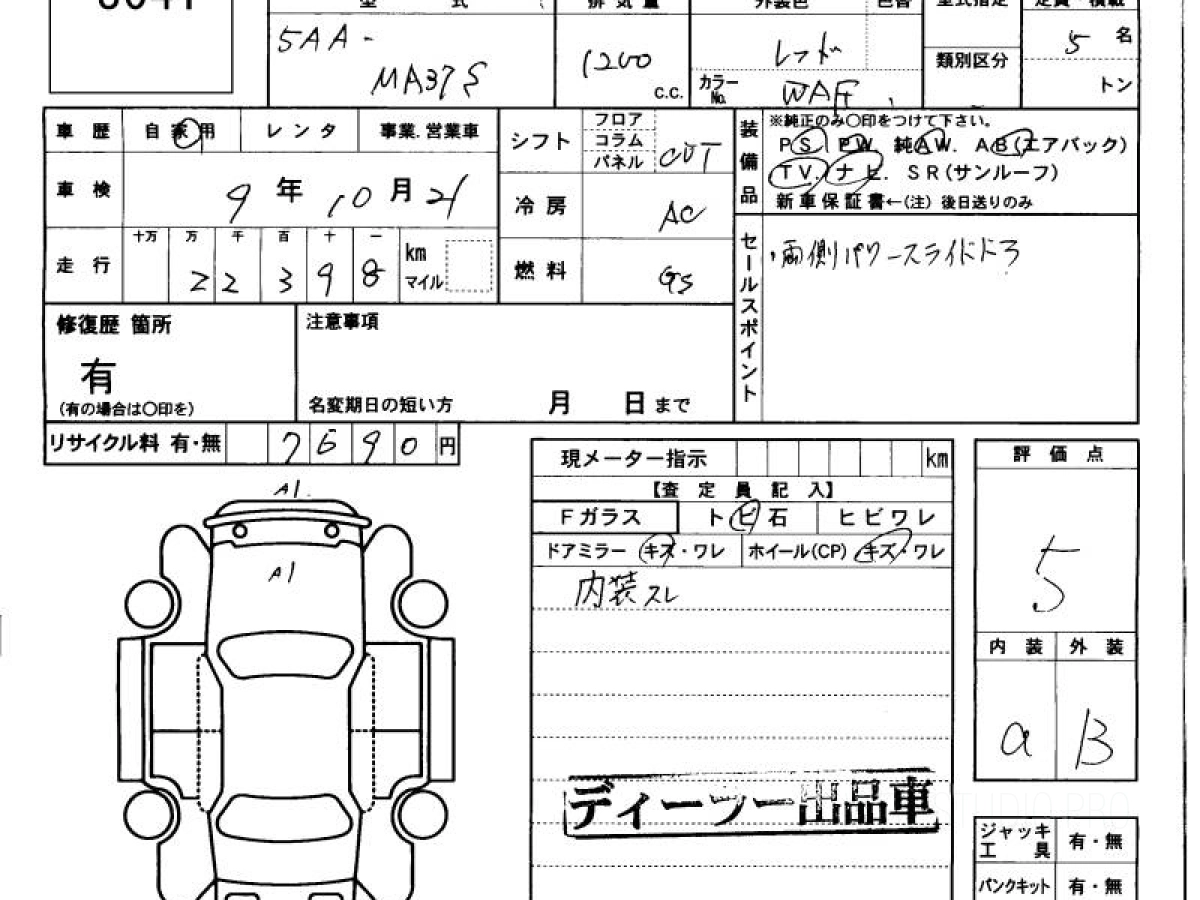 型 式 排気量 外装色 色替 型式指定 定員・積載
5AA-
MA37S
1200
c.c.
レッド
カラーNo.
WAF
類別区分
5 名
トン
車歴 自家用 レンタ 事業.営業車
車検 9年10月21
走行 十万 万 千 百 十 一
2 2 3 9 8
km
マイル
シフト フロア
コラム
パネル
CVT
冷房 AC
燃料 GS
装備品
※純正のみ○印をつけて下さい。
PS. PW. 純AW. AB(エアバック)
TV. ナビ. SR(サンルーフ)
新車保証書←(注) 後日送りのみ
セールスポイント
・両側パワースライドドア
修復歴 箇所
有
(有の場合は○印を)
注意事項
名変期日の短い方 月 日 まで
リサイクル料 有・無 7690 円
現メーター指示 km
【査定員記入】
Fガラス トビ石 ヒビワレ
ドアミラー キズ・ワレ ホイール(CP) キズ・ワレ
内装スレ
評価点
5
内装 外装
a B
A1
A1
ディーラー出品車
ジャッキ
工 具
有・無
パンクキット 有・無